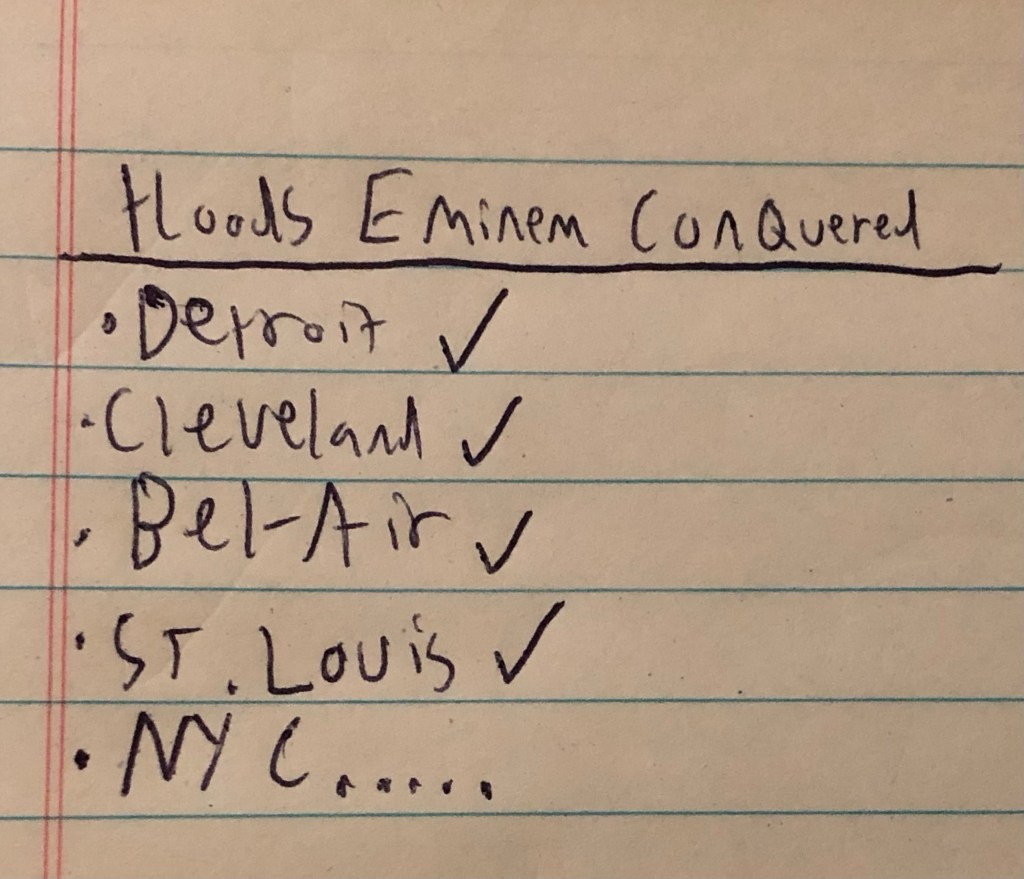 Hoods Eminem Conquered
• Detroit ✓
• Cleveland ✓
• Bel-Air ✓
• ST. Louis ✓
• NYC.....